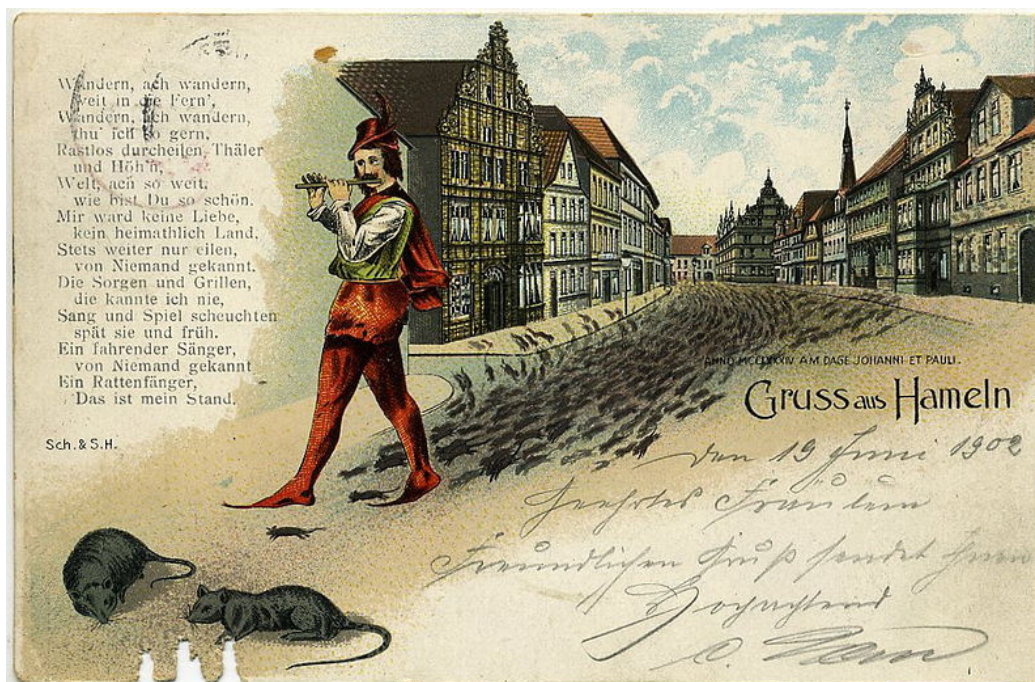 Wandern, ach wandern,
weit in die Fern',
Wandern, ach wandern,
thu' ich so gern.
Rastlos durcheilen Thäler
und Höh'n,
Welt, ach so weit,
wie bist Du so schön.
Mir ward keine Liebe,
kein heimathlich Land,
Stets weiter nur eilen,
von Niemand gekannt.
Die Sorgen und Grillen,
die kannte ich nie,
Sang und Spiel scheuchten
spät sie und früh.
Ein fahrender Sänger,
von Niemand gekannt
Ein Rattenfänger,
Das ist mein Stand.
Sch. & S.H.
ANNO MCCLXXXIV AM DAGE JOHANNI ET PAULI.
Gruss aus Hameln
Den 19 Juni 1902
Geehrtes Fräulein
Freundlichen Gruß sendet Ihnen
Hochachtend